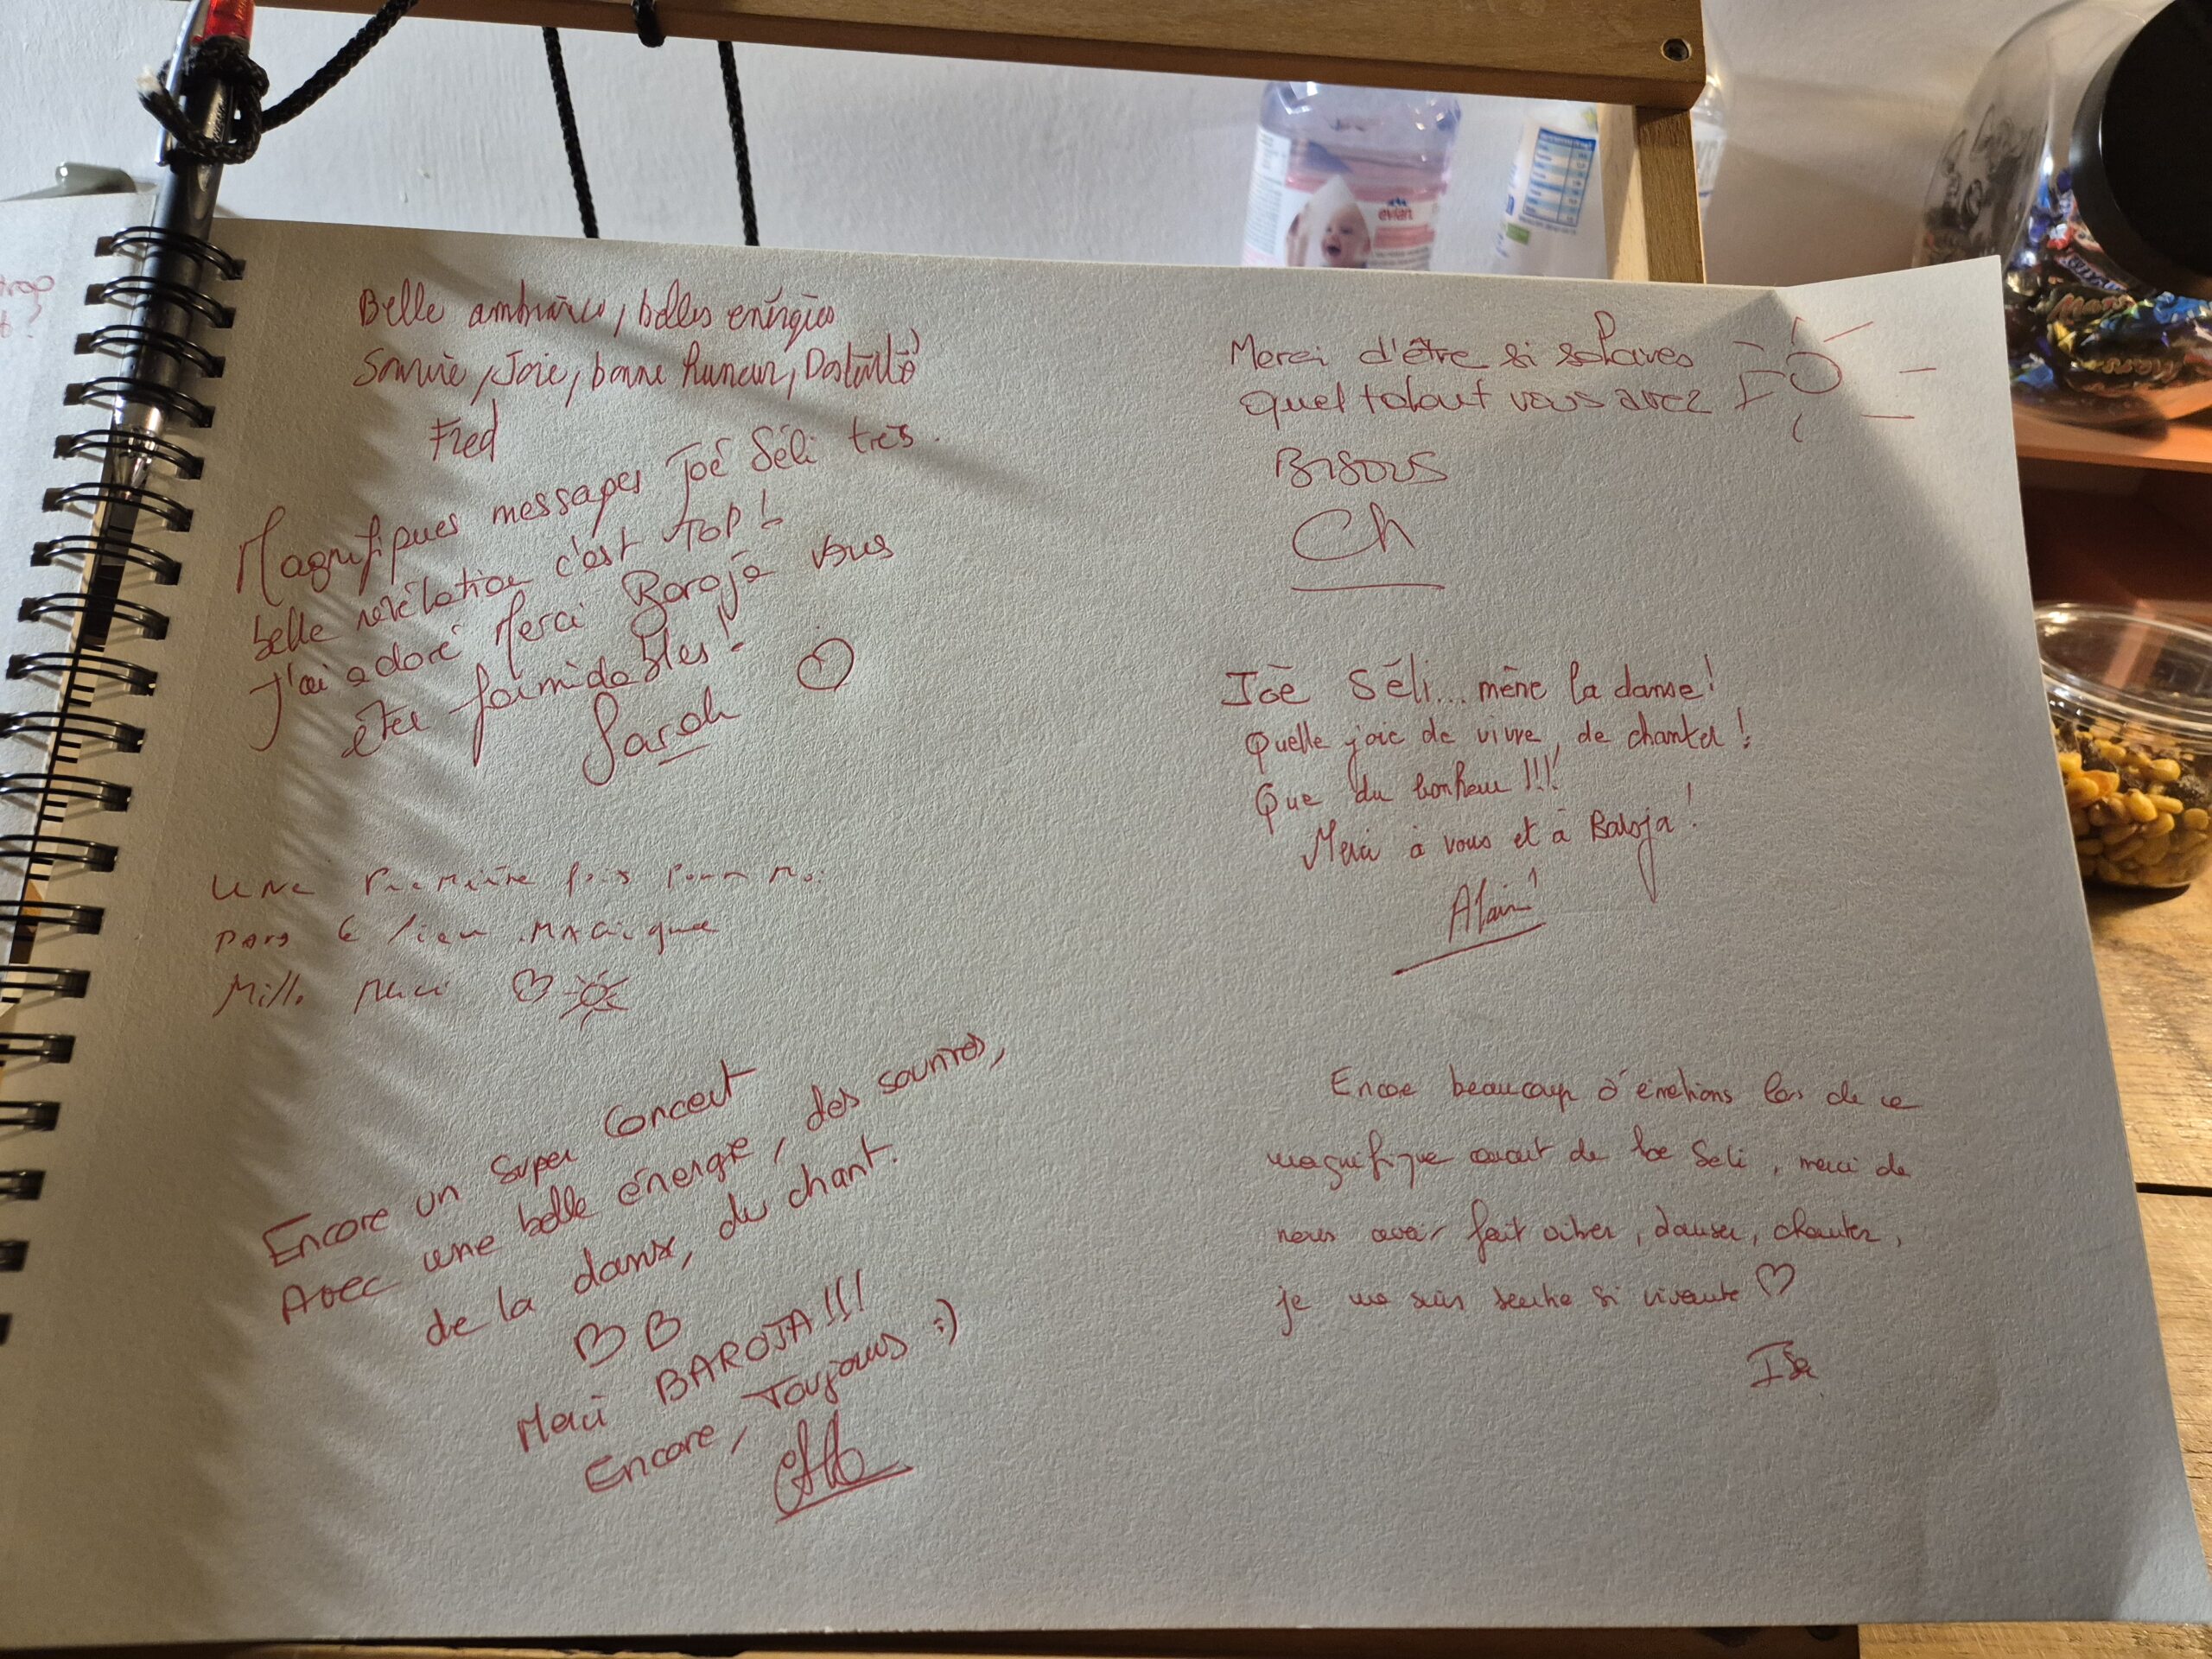 Belle ambiance, belles énergies
Sourire, Joie, bonne humeur,
Fred
Magnifiques messages Joé Séli très
belle révélation c'est TOP !
J'ai adoré Merci Baroja vous
êtes formidables !
Sarah
UNE Première fois pour moi
DANS Ce lieu MAGique
Mille Merci
Encore un super concert
Avec une belle énergie, des sourires,
de la danse, du chant.
Merci BAROJA !!!
Encore, Toujours :)
Merci d'être si solaires
Quel talent vous avez
Bisous
Ch
Joé Séli... mène la danse !
Quelle joie de vivre, de chanter !
Que du bonheur !!!
Merci à vous et à Baroja !
Alain
Encore beaucoup d'émotions lors de ce
magnifique concert de Joe Seli, merci de
nous avoir fait vibrer, danser, chanter,
je me suis sentie si vivante
Isa
evian
Mars
trop